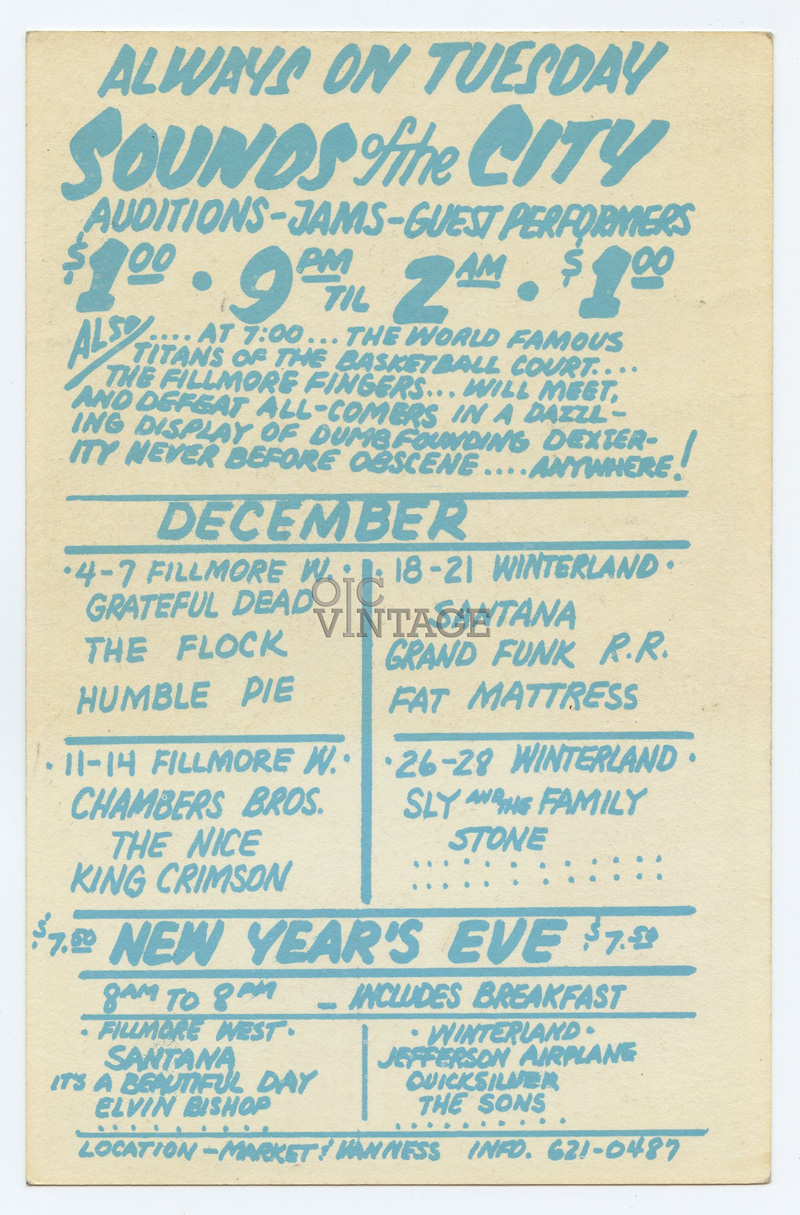 ALWAYS ON TUESDAY
SOUNDS of the CITY
AUDITIONS-JAMS-GUEST PERFORMERS
$1 00 • 9 PM TIL 2 AM • $1 00
ALSO .... AT 7:00 ... THE WORLD FAMOUS
TITANS OF THE BASKETBALL COURT....
THE FILLMORE FINGERS... WILL MEET,
AND DEFEAT ALL-COMERS IN A DAZZL-
ING DISPLAY OF DUMBFOUNDING DEXTER-
ITY NEVER BEFORE OBSCENE .... ANYWHERE!
DECEMBER
•4-7 FILLMORE W.•
GRATEFUL DEAD
THE FLOCK
HUMBLE PIE
•11-14 FILLMORE W.•
CHAMBERS BROS.
THE NICE
KING CRIMSON
•18-21 WINTERLAND•
SANTANA
GRAND FUNK R.R.
FAT MATTRESS
•26-28 WINTERLAND•
SLY AND THE FAMILY
STONE
OJC
VINTAGE
$7.50 NEW YEAR'S EVE $7.50
8 AM TO 8 PM - INCLUDES BREAKFAST
•FILLMORE WEST•
SANTANA
IT'S A BEAUTIFUL DAY
ELVIN BISHOP
•WINTERLAND•
JEFFERSON AIRPLANE
QUICKSILVER
THE SONS
LOCATION-MARKET & VAN NESS INFO. 621-0487